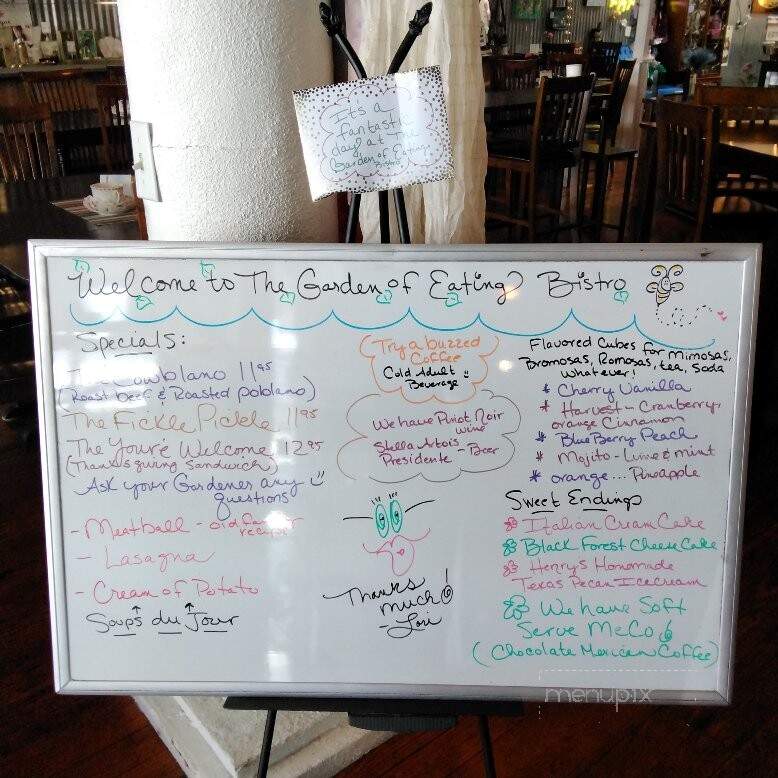 It's a
fantastic
day at The
Garden of Eating
Bistro
Welcome to The Garden of Eating Bistro
Specials:
The Cowblano 11.95
(Roast beef & Roasted poblano)
The Fickle Pickle 11.95
The You're Welcome 12.95
(Thanksgiving Sandwich)
Ask your Gardener any
questions
- Meatball - old family
recipe
- Lasagna
- Cream of Potato
Soups du Jour
Try a buzzed
Coffee
Cold Adult
Beverage
We have Pinot Noir
wine
Stella Artois -
Presidente - Beer
Thanks
much!
- Lori
Flavored Cubes for Mimosas,
Bromosas, Romosas, tea, Soda
whatever!
* Cherry Vanilla
* Harvest - Cranberry,
orange Cinnamon
* BlueBerry Peach
* Mojito - Lime & mint
* orange... Pineapple
Sweet Endings
Italian Cream Cake
Black Forest Cheese Cake
Henrys Homemade
Texas Pecan Icecream
We have Soft
Serve MeCo
(Chocolate Mexican Coffee)
menupix